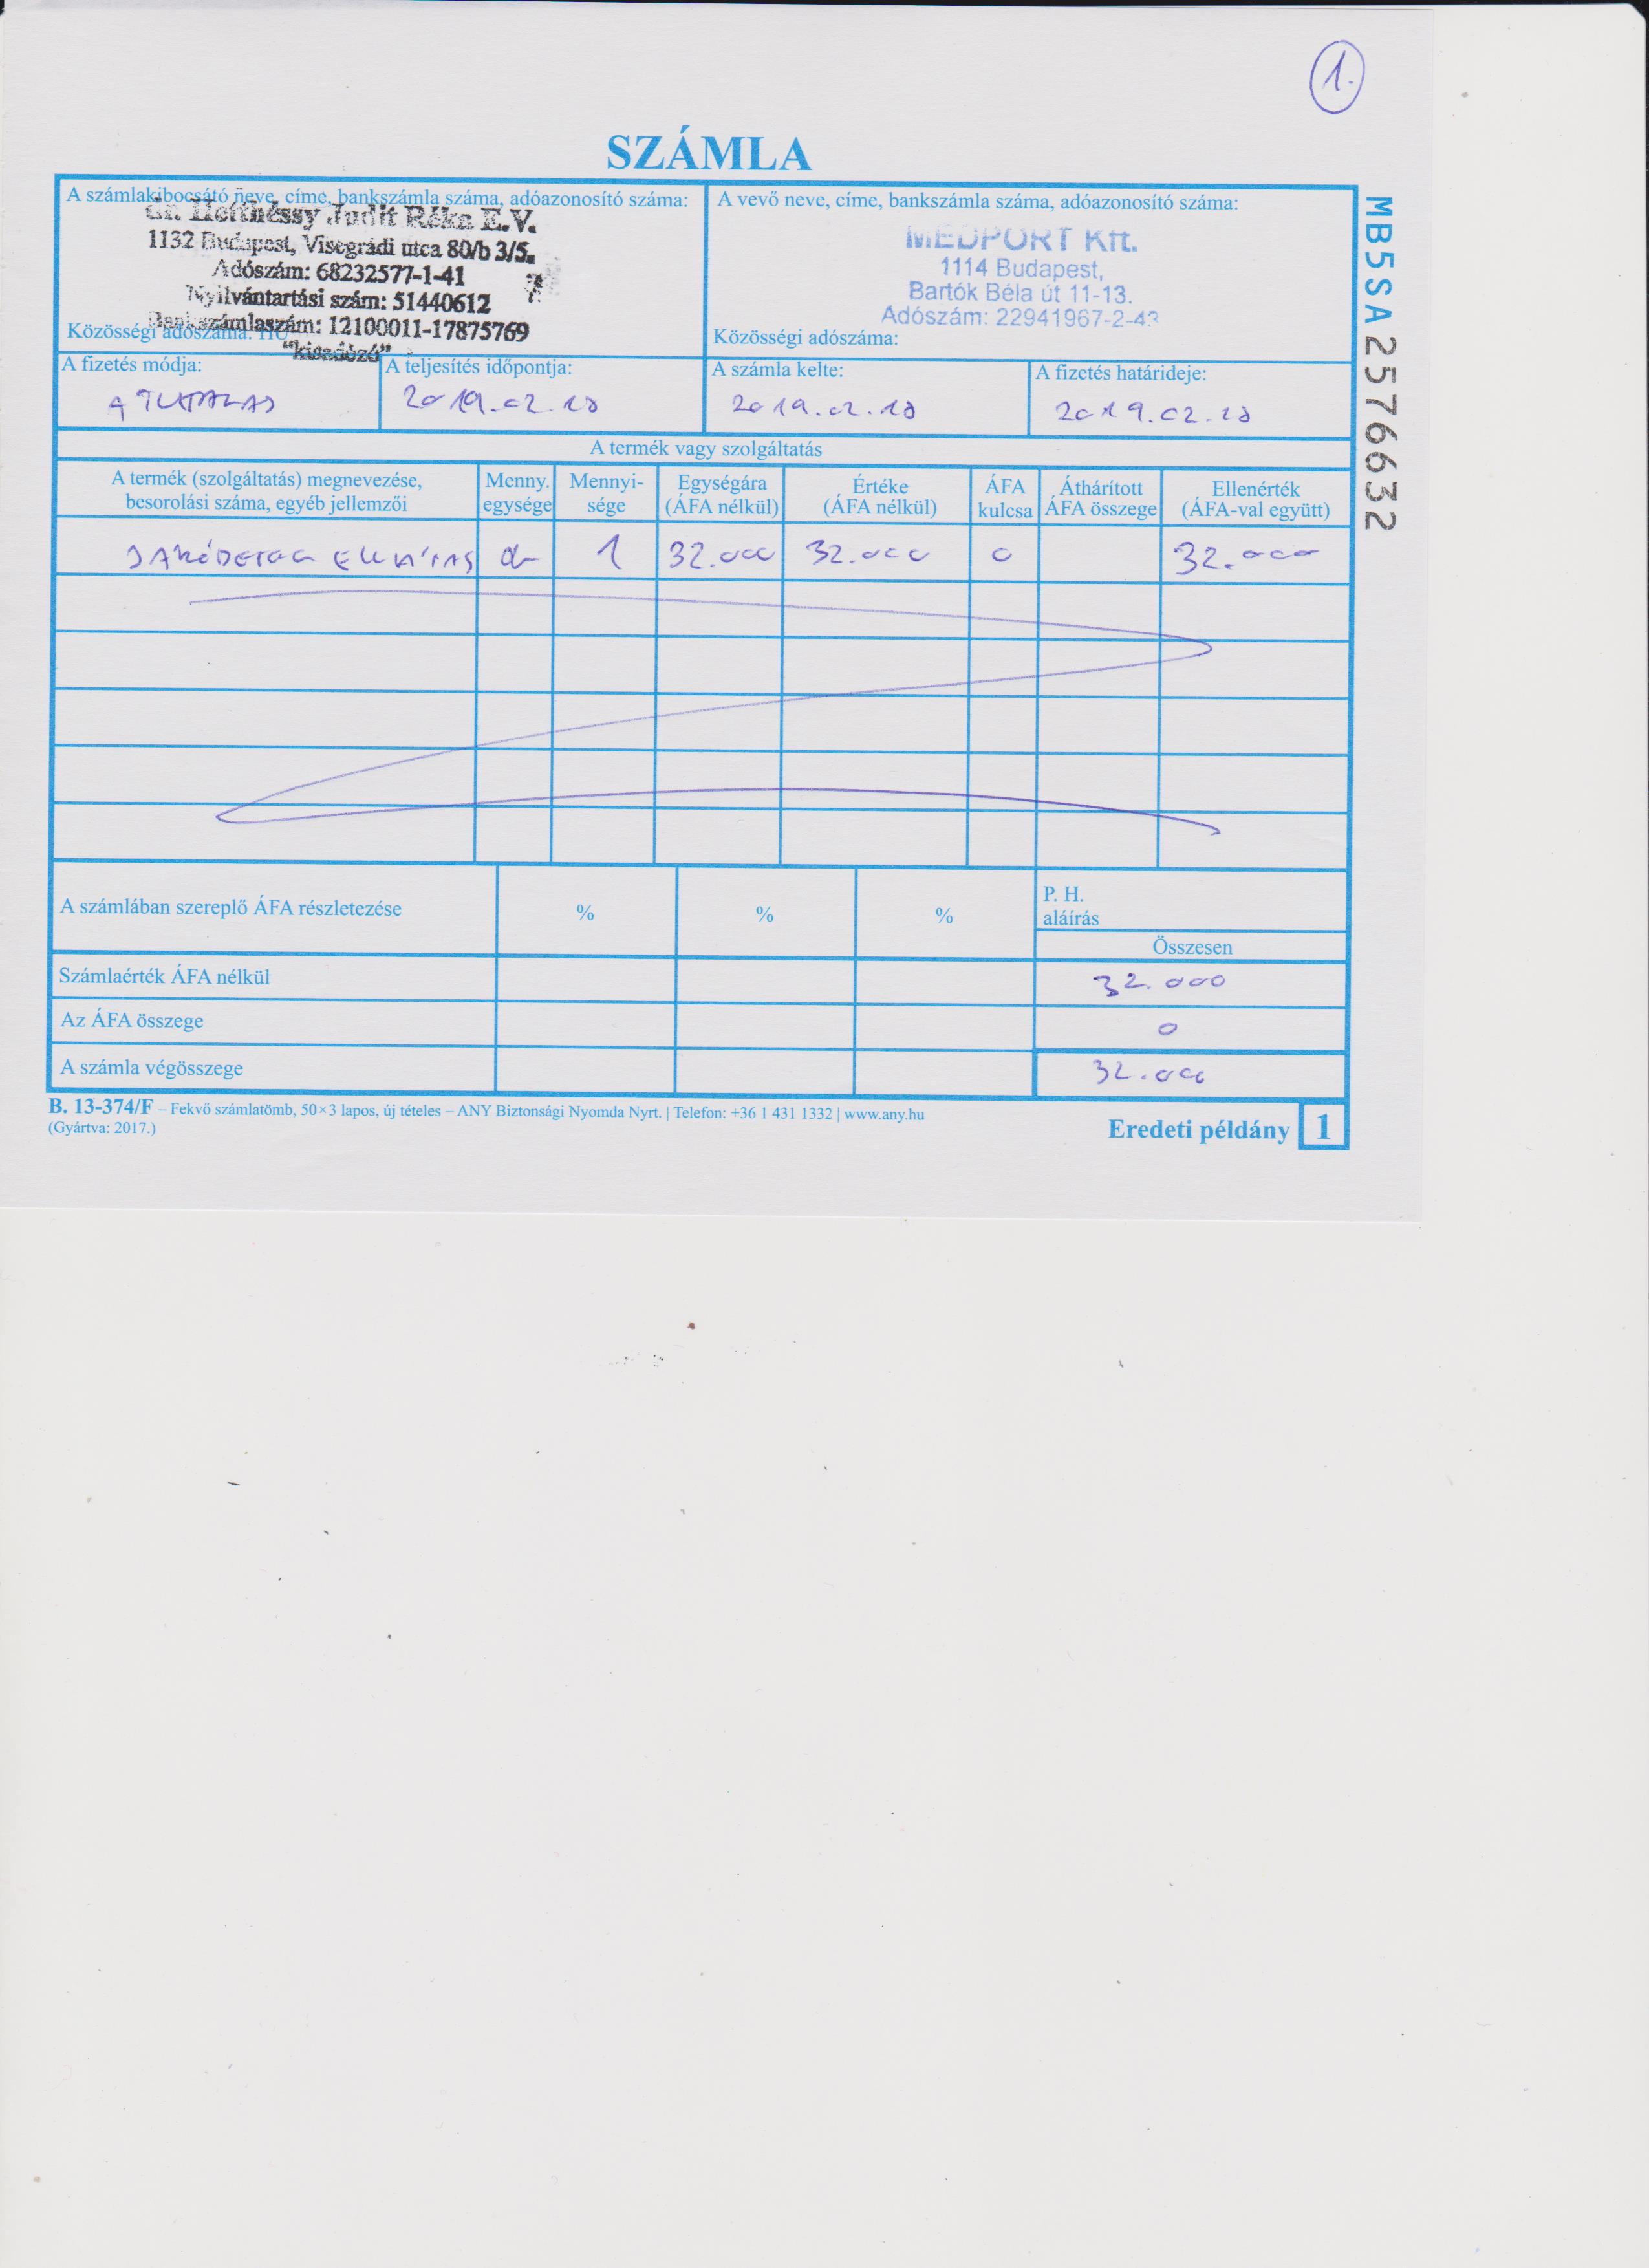 1.
SZÁMLA
A számlakibocsátó neve, címe, bankszámla száma, adóazonosító száma:
dr. Judit Réka E.V.
1132 Budapest, Visegrádi utca 80/b 3/5.
Adószám: 68232577-1-41
Nyilvántartási szám: 51440612
Bankszámlaszám: 12100011-17875769
Közösségi adószáma: HU
"kisadózó"
A vevő neve, címe, bankszámla száma, adóazonosító száma:
MEDPORT Kft.
1114 Budapest,
Bartók Béla út 11-13.
Adószám: 22941967-2-43
Közösségi adószáma:
MB5SA2576632
A fizetés módja: A teljesítés időpontja: A számla kelte: A fizetés határideje:
ÁTUTALÁS 2019.02. 2019.02. 2019.02.
A termék vagy szolgáltatás
A termék (szolgáltatás) megnevezése, besorolási száma, egyéb jellemzői
Menny. egysége
Mennyi-sége
Egységára (ÁFA nélkül)
Értéke (ÁFA nélkül)
ÁFA kulcsa
Áthárított ÁFA összege
Ellenérték (ÁFA-val együtt)
1 32.000 32.000 0 32.000
A számlában szereplő ÁFA részletezése % % %
P. H.
aláírás
Összesen
Számlaérték ÁFA nélkül 32.000
Az ÁFA összege 0
A számla végösszege 32.000
B. 13-374/F – Fekvő számlatömb, 50×3 lapos, új tételes – ANY Biztonsági Nyomda Nyrt. | Telefon: +36 1 431 1332 | www.any.hu
(Gyártva: 2017.)
Eredeti példány 1